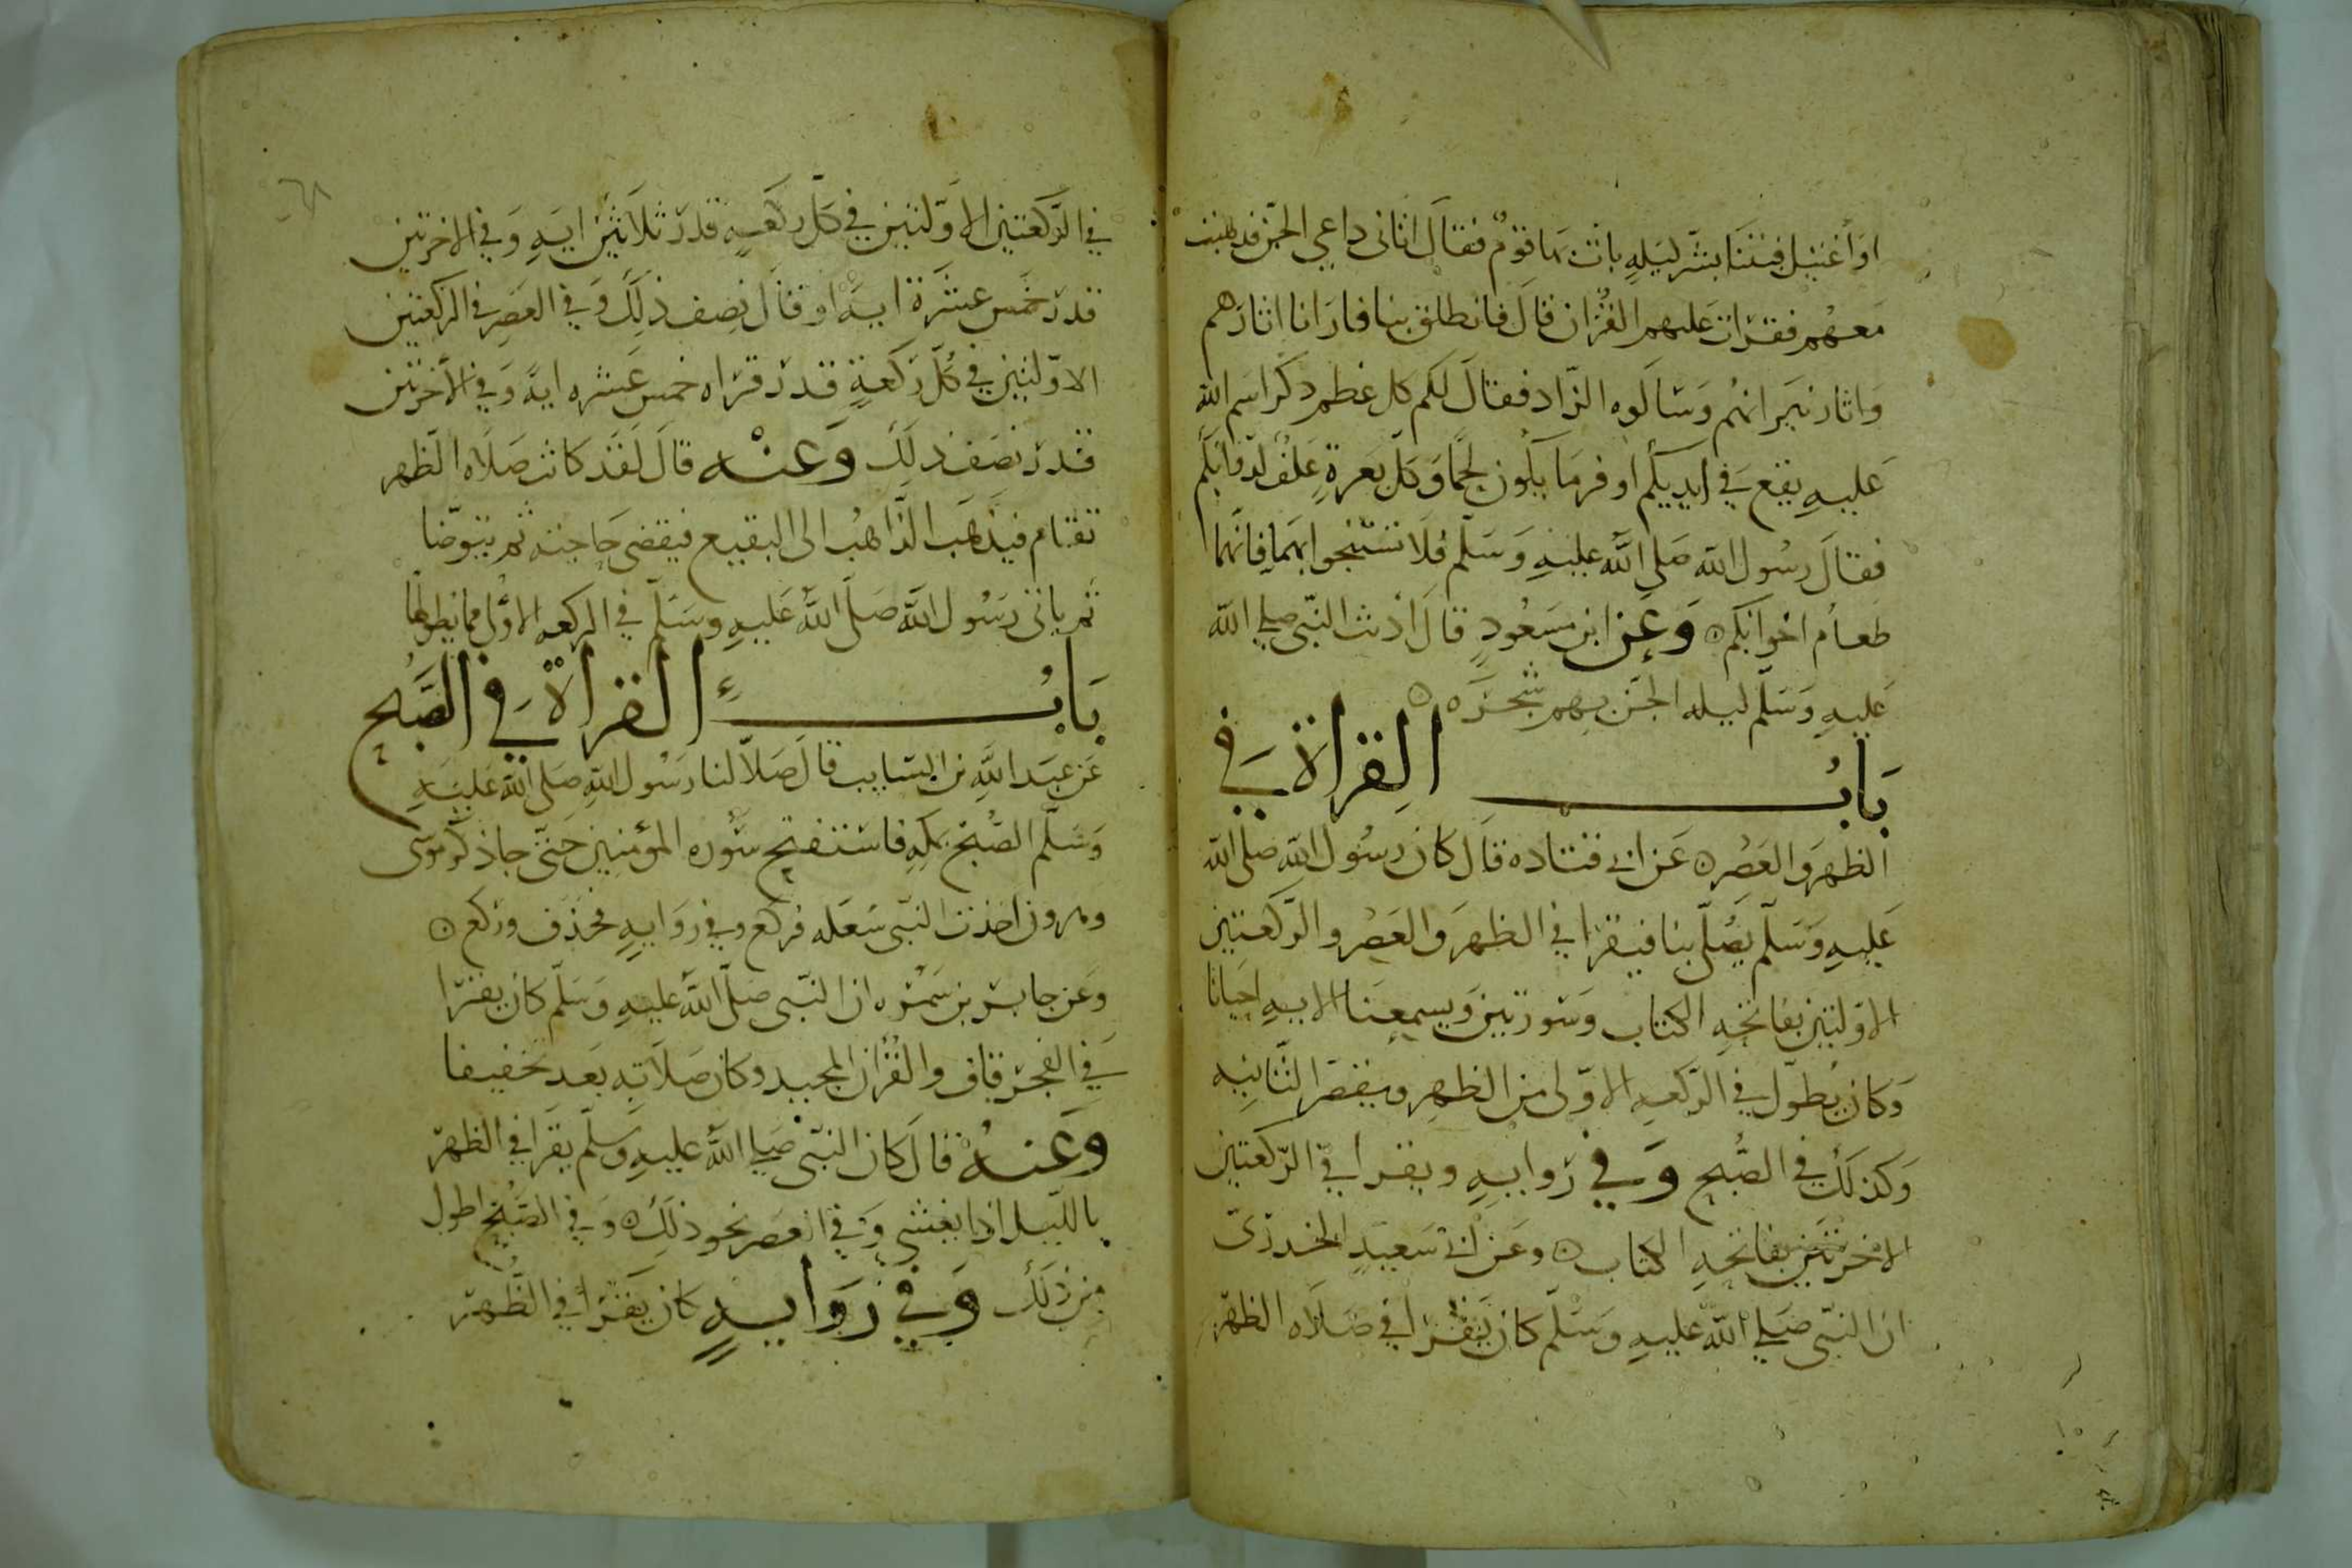 او أغتيل فبتنا بشر ليله بات بها قوم فقال اتانى داعي الجن فذهبت
معهم فقرات عليهم القرآن قال فانطلق بنا فارانا اثارهم
واثار نيرانهم وسالوه الزاد فقال لكم كل عظم ذكر اسم الله
عليه يقع في ايديكم اوفر ما يكون لحما وكل بعرة علف لدوابكم
فقال رسول الله صلى الله عليه وسلم فلا تستنجوا بهما فانهما
طعام اخوانكم وعن ابن مسعود قال اذنت النبي صلى الله
عليه وسلم ليله الجن بهم شجره
باب القراة في
الظهر والعصر عن ابي قتاده قال كان رسول الله صلى الله
عليه وسلم يصلي بنا فيقرا في الظهر والعصر والركعتين
الاولتين بفاتحه الكتاب وسورتين ويسمعنا الايه احيانا
وكان يطول في الركعه الاولى من الظهر ويقصر الثانيه
وكذلك في الصبح وفي روايه ويقرا في الركعتين
الاخرتين بفاتحه الكتاب وعن ابي سعيد الخدرى
ان النبى صلى الله عليه وسلم كان يقرا في صلاه الظهر
في الركعتين الاولتين في كل ركعه قدر ثلاثين ايه وفي الاخرتين
قدر خمس عشرة ايه او قال نصف ذلك وفي العصر في الركعتين
الاولتين في كل ركعة قدر قراه خمس عشره اية وفي الاخرتين
قدر نصف ذلك وعنه قال لقد كانت صلاه الظهر
تقام فيذهب الذاهب الى البقيع فيقضى حاجته ثم يتوضا
ثم ياتى رسول الله صلى الله عليه وسلم في الركعه الاولى مما يطولها
باب القراة في الصبح
عن عبد الله بن السايب قال صلا لنا رسول الله صلى الله عليه
وسلم الصبح بمكه فاستفتح سوره المؤمنين حتى جا ذكر موسى
وهرون اخذت النبى سعله فركع وفي روايه فحذف وركع
وعن جابر بن سمره ان النبى صلى الله عليه وسلم كان يقرا
في الفجر قاف والقرآن المجيد وكان صلاته بعد تخفيفا
وعنه قال كان النبى صلى الله عليه وسلم يقرا في الظهر
بالليل اذا يغشى وفي العصر نحو ذلك وفي الصبح اطول
من ذلك وفي روايه كان يقرا في الظهر